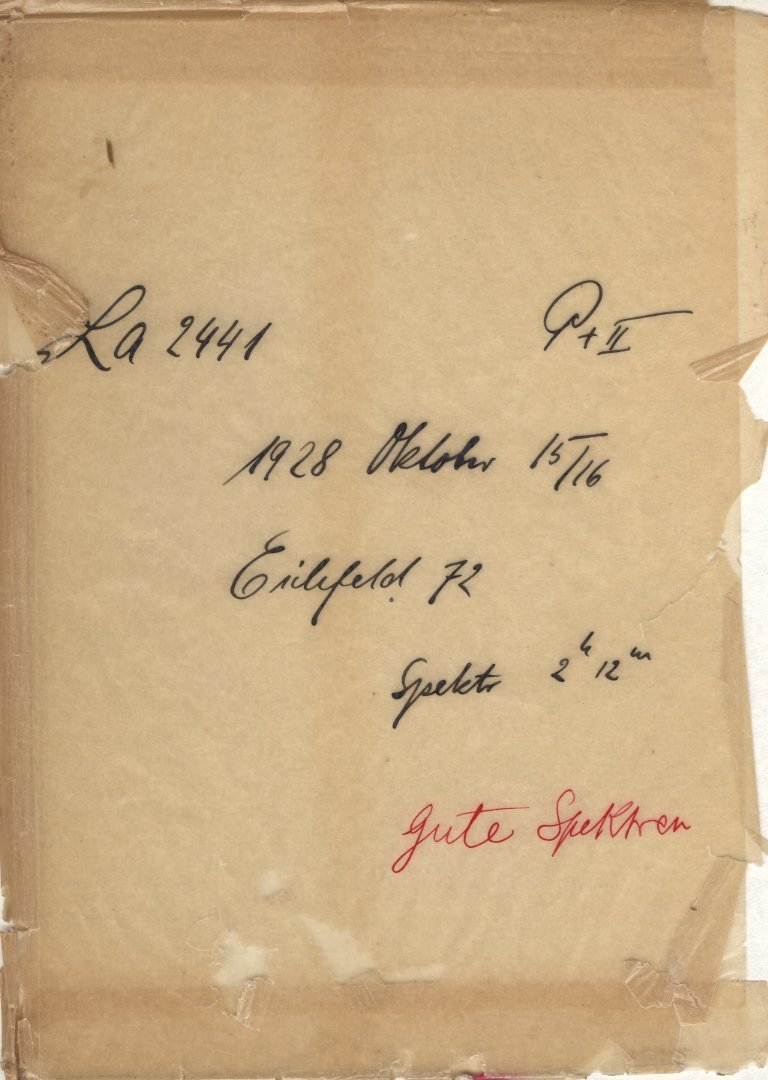 La 2441 P+II
1928 Oktober 15/16
Eichfeld 72
Spektr 2h 12m
Gute Spektren